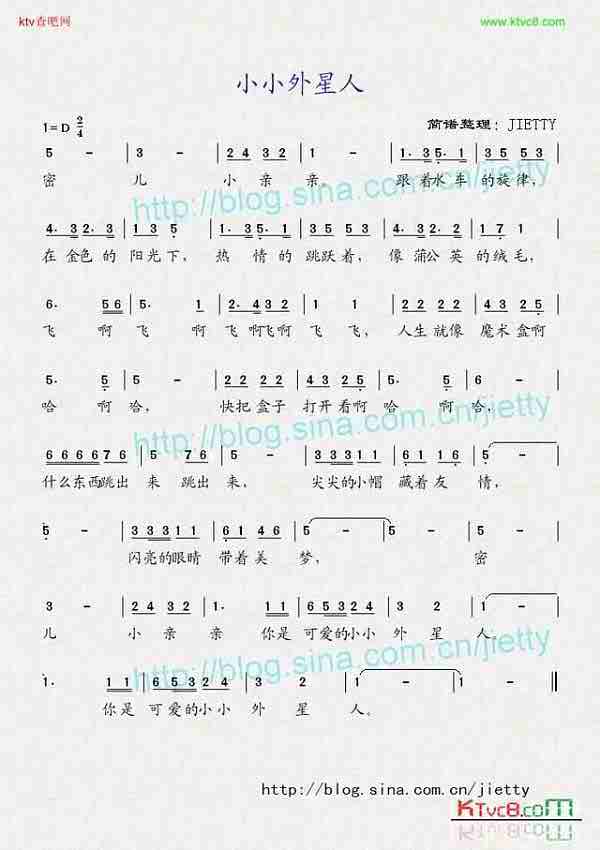 ktv查吧网 www.ktvc8.com
小小外星人
1=D 2/4 简谱整理：JIETTY
5 - | 3 - | 2 4 3 2 | 1 - | 1. 3 5. 1 | 3 5 5 3 5 |
密 儿 小亲 亲。 跟着水车的旋律，
http://blog.sina.com.cn/jietty
4. 3 2. 3 | 1 3 5 | 1. 3 5. 1 | 3 5 3 5 | 4. 3 2. 3 | 1 7 1 |
在金色的 阳光下， 热情的 跳跃着， 像蒲公英的绒毛，
6. 5 6 | 5. 1 | 3 2 3 2 | 1 1 | 2 2 2 2 | 4 3 2 5 |
飞 啊 飞 啊 飞啊飞啊 飞飞， 人生就像 魔术盒啊
5. 5 | 5 - | 2 2 2 2 | 4 3 2 5 | 5. 5 | 6 - |
哈 啊 哈， 快把盒子 打开看啊 哈 啊 哈，
http://blog.sina.com.cn/jietty
6 6 6 6 7 6 | 5 7 6 | 5 - | 3 3 3 1 1 | 6 1 6 1 | 5 -
什么东西跳出 来 跳出 来， 尖尖的小帽 藏着友 情，
5 - | 3 3 3 1 1 | 6 1 4 6 | 1 - | 1 - | 5 -
闪亮的眼睛 带着美 梦， 密
3 - | 2 4 3 2 | 1. 1 1 | 6 5 5 3 2 4 | 3 2 | 1 -
儿 小亲亲 你是 可爱的小小 外星 人。
http://blog.sina.com.cn/jietty
1. 1 1 | 6 5 5 3 2 4 | 3 2 | 1 - | 1 - ||
你是 可爱的小小 外星 人。
http://blog.sina.com.cn/jietty
KTvc8.com